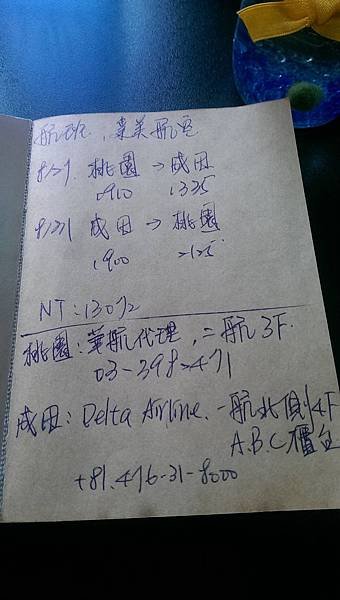 航班,業美航空
8/27. 桃園→成田
0900 1335
8/31 成田→桃園
1900 2125
NT:13072
桃園:華航代理,二航3F.
03-3982471
成田:Delta Airline.一航北側4F
A.B.C櫃台
+81.476-31-8000